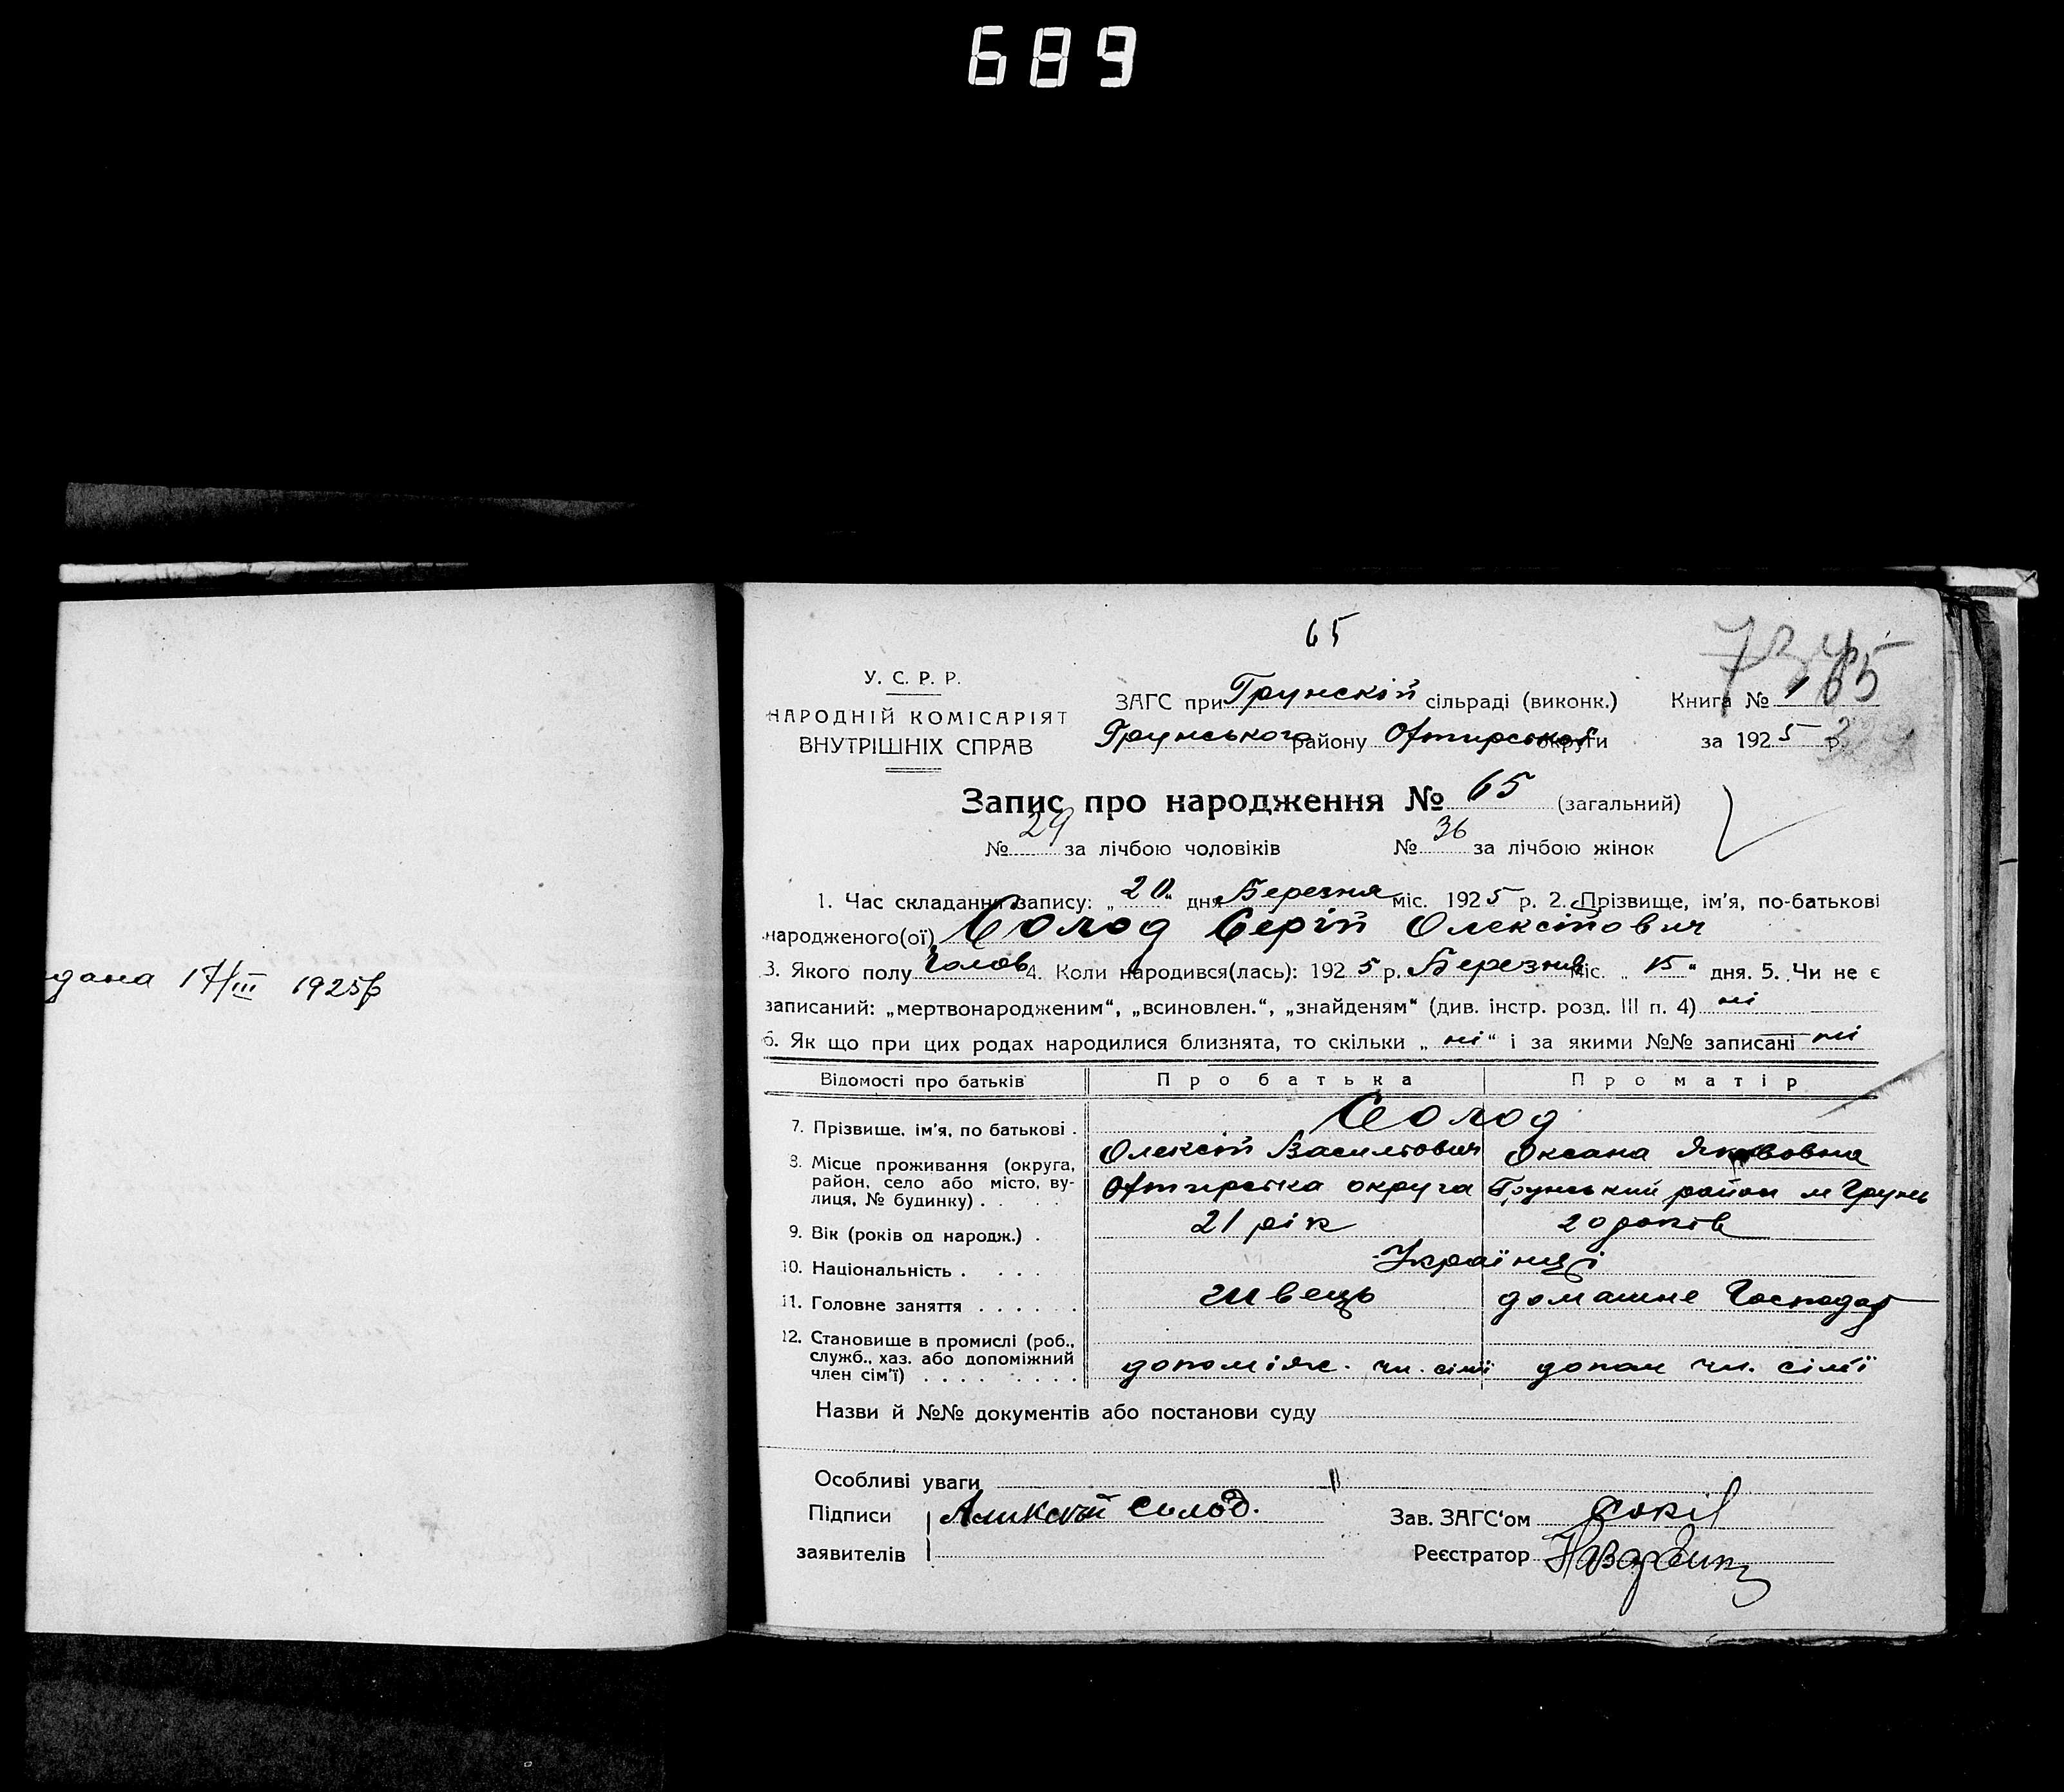 689
дана 17/III 1925р
65
65
У. С. Р. Р.
НАРОДНІЙ КОМІСАРІЯТ
ВНУТРІШНІХ СПРАВ
ЗАГС при Грунскій сільраді (виконк.) Книга № 1
Грунського району Охтирської округи за 1925 р.
Запис про народження № 65 (загальний)
№ 29 за лічбою чоловіків № 36 за лічбою жінок
1. Час складання запису: „20“ дня Березня міс. 1925 р. 2. Прізвище, ім'я, по-батькові
народженого(ої) Солод Сергій Олексійович
3. Якого полу Чолов 4. Коли народився(лась): 1925 р. Березня міс. „15“ дня. 5. Чи не є
записаний: „мертвонародженим“, „всиновлен.“, „знайденям“ (див. інстр. розд. III п. 4) ні
6. Як що при цих родах народилися близнята, то скільки „ні“ і за якими №№ записані ні
Відомості про батьків Про батька Про матір
Солод
7. Прізвище, ім'я, по батькові . Олексій Васильович Оксана Якововна
8. Місце проживання (округа,
район, село або місто, ву-
лиця, № будинку) . . Охтирська округа Грунський район м Грунь
9. Вік (років од народж.) . 21 рік 20 років
10. Національність . . . . Українці
11. Головне заняття . . . . . . швець домашне Господар
12. Становище в промислі (роб.,
служб., хаз. або допоміжний
член сім'ї) . . . . . . . . допоміж. чл. сімї допом чл. сімї
Назви й №№ документів або постанови суду
Особливі уваги
Підписи Аликсей Солод.
заявителів
Зав. ЗАГС'ом
Реєстратор